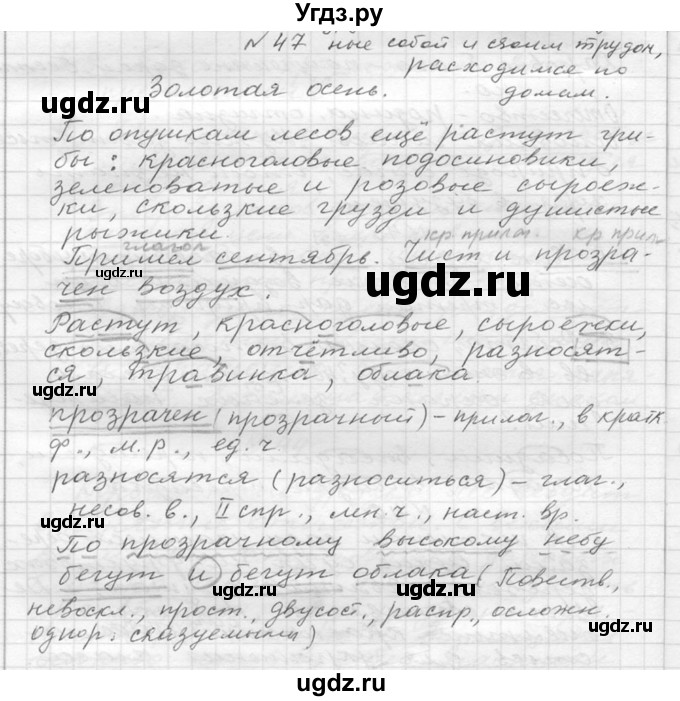 Угдз.ру
№ 47 ные собой и своим трудом,
расходимся по
Золотая осень. домам.
ugdz.ru
По опушкам лесов ещё растут гри-
бы: красноголовые подосиновики,
зеленоватые и розовые сыроеж-
ки, скользкие грузди и душистые
рыжики.
глагол кр прилаг. кр прил.
Пришёл сентябрь. Чист и прозра-
чен воздух.
ugdz.ru
Растут, красноголовые, сыроежки,
скользкие, отчётливо, разносят-
ся, травинка, облака
ugdz.ru
прозрачен (прозрачный) – прилаг., в кратк
ф., м.р., ед.ч
разносятся (разноситься) – глаг.,
несов. в., II спр., мн.ч., наст. вр.
ugdz.ru
По прозрачному высокому небу
бегут и бегут облака (Повеств.,
невоскл., прост., двусост., распр., осложн.
однор. сказуемыми)
ugdz.ru
ugdz.ru
ugdz.ru
ugdz.ru